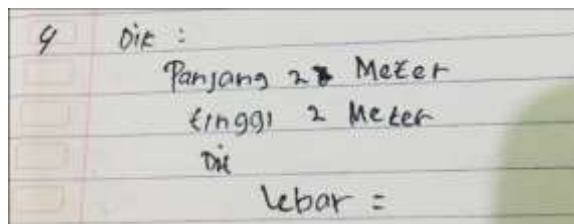 4 Dik :
Panjang 2 Meter
tinggi 2 Meter
Dik
Lebar =